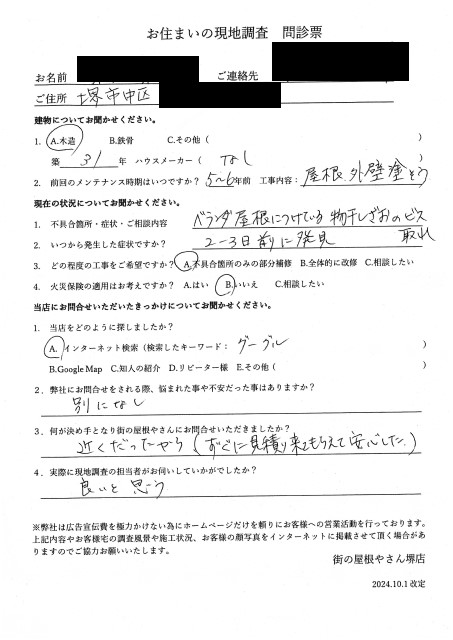 お住まいの現地調査 問診票
お名前 ご連絡先
ご住所 堺市中区
建物についてお聞かせください。
1. A.木造 B.鉄骨 C.その他（ ）
築 31 年 ハウスメーカー（ なし ）
2. 前回のメンテナンス時期はいつですか？ 5〜6年前 工事内容：屋根、外壁塗そう
現在の状況についてお聞かせください。
1. 不具合箇所・症状・ご相談内容 ベランダ屋根につけている物干しざおのビス
取れ
2. いつから発生した症状ですか？ 2〜3日前に発見
3. どの程度の工事をご希望ですか？ A.不具合箇所のみの部分補修 B.全体的に改修 C.相談したい
4. 火災保険の適用はお考えですか？ A.はい B.いいえ C.相談したい
当店にお問合せいただいたきっかけについてお聞かせください。
1. 当店をどのように探しましたか？
A. インターネット検索（検索したキーワード： グーグル ）
B.Google Map C.知人の紹介 D.リピーター様 E.その他（ ）
2．弊社にお問合せをされる際、悩まれた事や不安だった事はありますか？
別になし
3．何が決め手となり街の屋根やさんにお問合せいただきましたか？
近くだったから（すぐに見積り来てもらえて安心した。）
4．実際に現地調査の担当者がお伺いしていかがでしたか？
良いと思う
※弊社は広告宣伝費を極力かけない為にホームページだけを頼りにお客様への営業活動を行っております。
上記内容やお客様宅の調査風景や施工状況、お客様の顔写真をインターネットに掲載させて頂く場合があ
りますのでご協力お願いいたします。
街の屋根やさん堺店
2024.10.1 改定